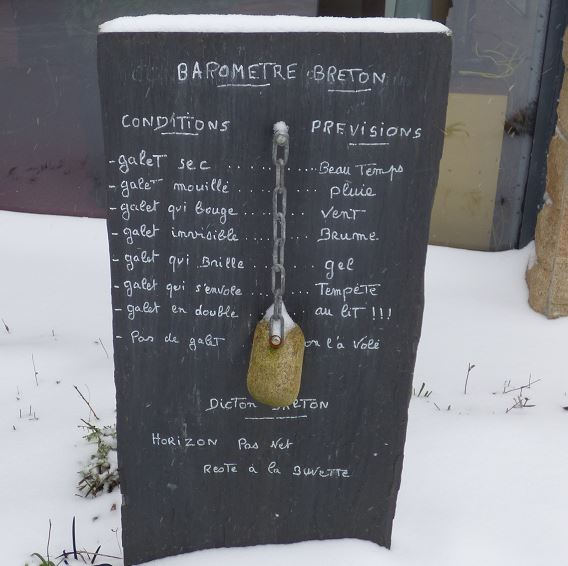 BAROMETRE BRETON
CONDITIONS PREVISIONS
- galet sec ......... Beau Temps
- galet mouillé ......... pluie
- galet qui bouge ......... vent
- galet invisible ......... Brume
- galet qui Brille ......... gel
- galet qui s'envole ......... Tempête
- galet en double ......... au lit !!!
- Pas de galet on l'a volé
Dicton BRETON
HORIZON Pas Net
Reste à la Buvette